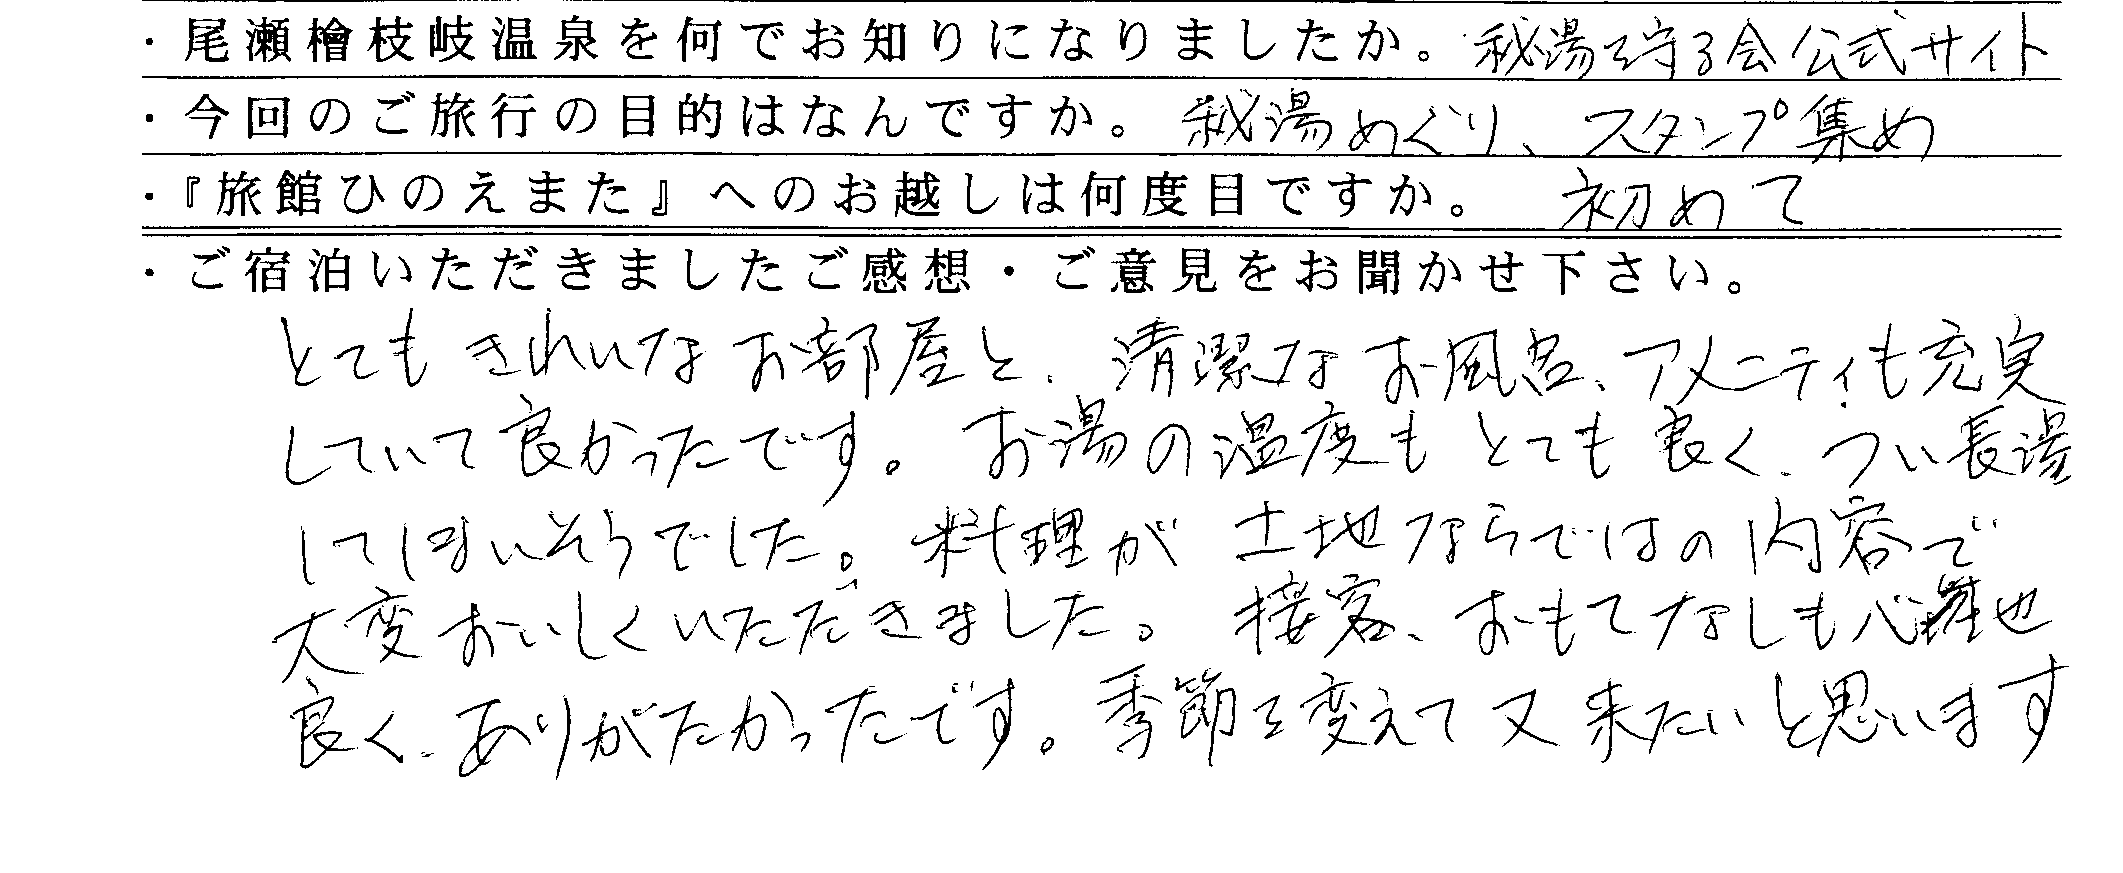 ・尾瀬檜枝岐温泉を何でお知りになりましたか。秘湯を守る会公式サイト
・今回のご旅行の目的はなんですか。秘湯めぐり、スタンプ集め
・『旅館ひのえまた』へのお越しは何度目ですか。 初めて
・ご宿泊いただきましたご感想・ご意見をお聞かせ下さい。
とてもきれいなお部屋と、清潔なお風呂、アメニティも充実
していて良かったです。お湯の温度もとても良く、つい長湯
してしまいそうでした。料理が土地ならではの内容で
大変おいしくいただきました。接客、おもてなしも心地
良く、ありがたかったです。季節を変えて又来たいと思います